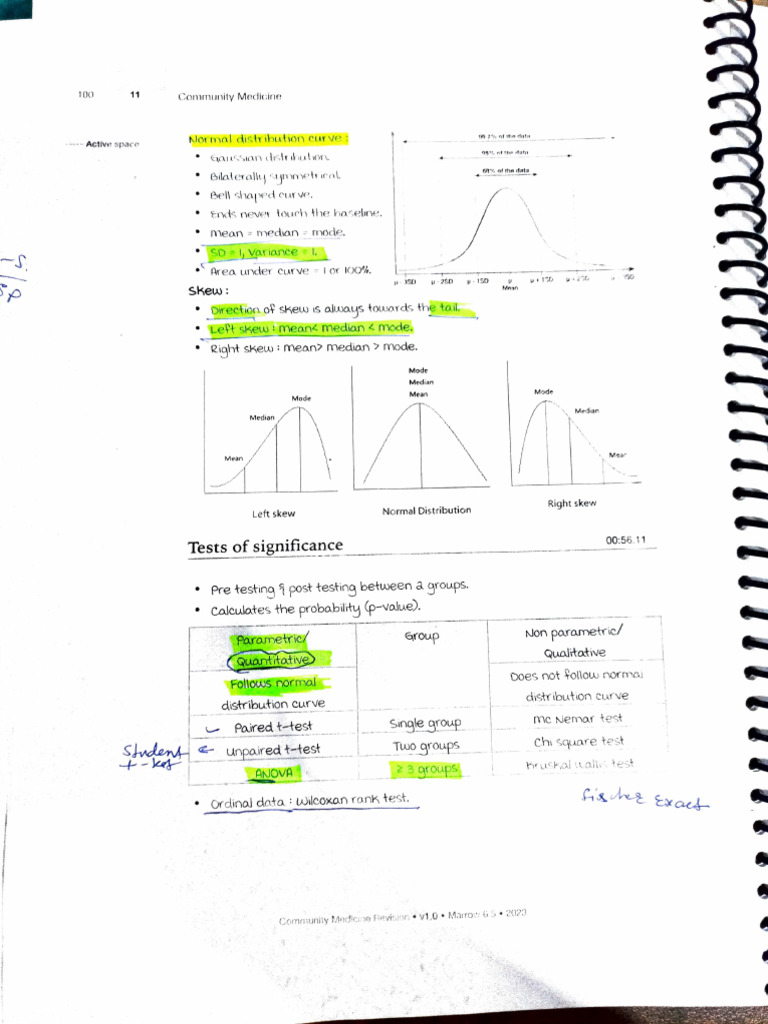 100 11 Community Medicine
Active space
Normal distribution curve :
• Gaussian distribution.
• Bilaterally symmetrical.
• Bell shaped curve.
• Ends never touch the baseline.
• mean = median = mode.
• SD = 1, Variance = 1.
• Area under curve = 1 or 100%.
99.7% of the data
95% of the data
68% of the data
μ - 3SD μ - 2SD μ - 1SD μ μ + 1SD μ + 2SD
Mean
Skew :
• Direction of skew is always towards the tail.
• Left skew : mean< median < mode.
• Right skew : mean> median > mode.
Mean Median Mode
Left skew
Mode
Median
Mean
Normal Distribution
Mode Median Mean
Right skew
Tests of significance 00:56:11
• Pre testing & post testing between 2 groups.
• Calculates the probability (p-value).
Parametric/ Group Non parametric/
Quantitative Qualitative
Follows normal Does not follow normal
distribution curve distribution curve
Paired t-test Single group mc Nemar test
Student ← unpaired t-test Two groups Chi square test
t-test
ANOVA ≥ 3 groups Kruskal wallis test
• Ordinal data : Wilcoxan rank test.
fischer Exact
Community Medicine Revision • v1.0 • Marrow 6.5 • 2023